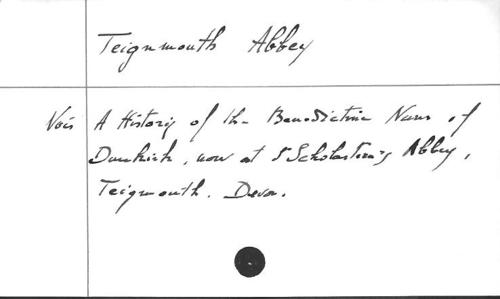 Teignmouth Abbey
Voir A History of the Benedictine Nuns of
Dunkirk, now at S Scholastica's Abbey,
Teignmouth. Devon.